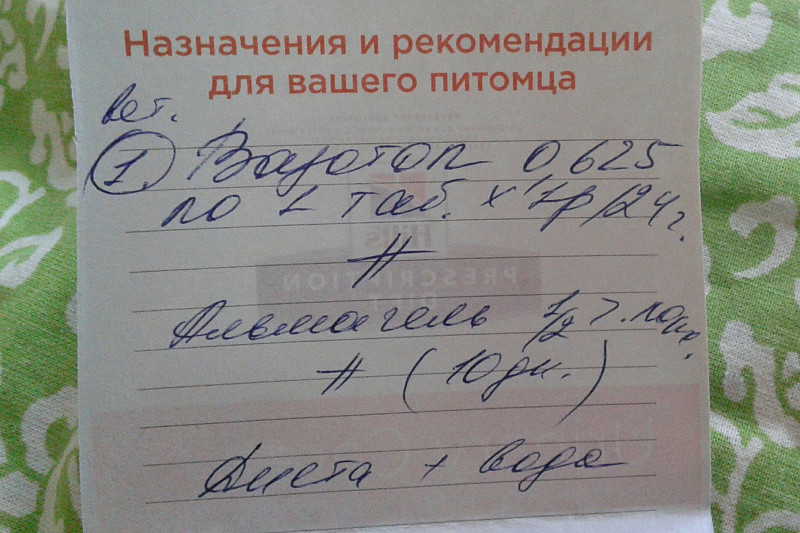 Назначения и рекомендации
для вашего питомца
вет.
① Вазотоп 0,625
по 1 таб. x 1р/24ч.
#
Альмагель 1/2 ч. ложк.
# (10 дн.)
Диета + вода